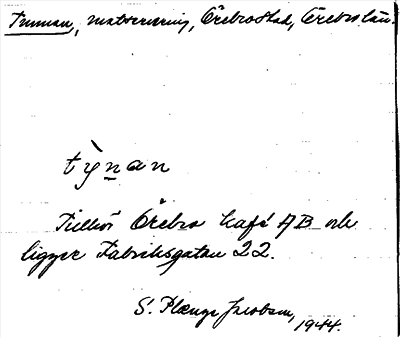 Tunnan, matservering, Örebro stad, Örebro län.
tỳnan
Tillhör Örebro Kafé AB och
ligger Fabriksgatan 22.
S. Plænge Jacobson, 1944.